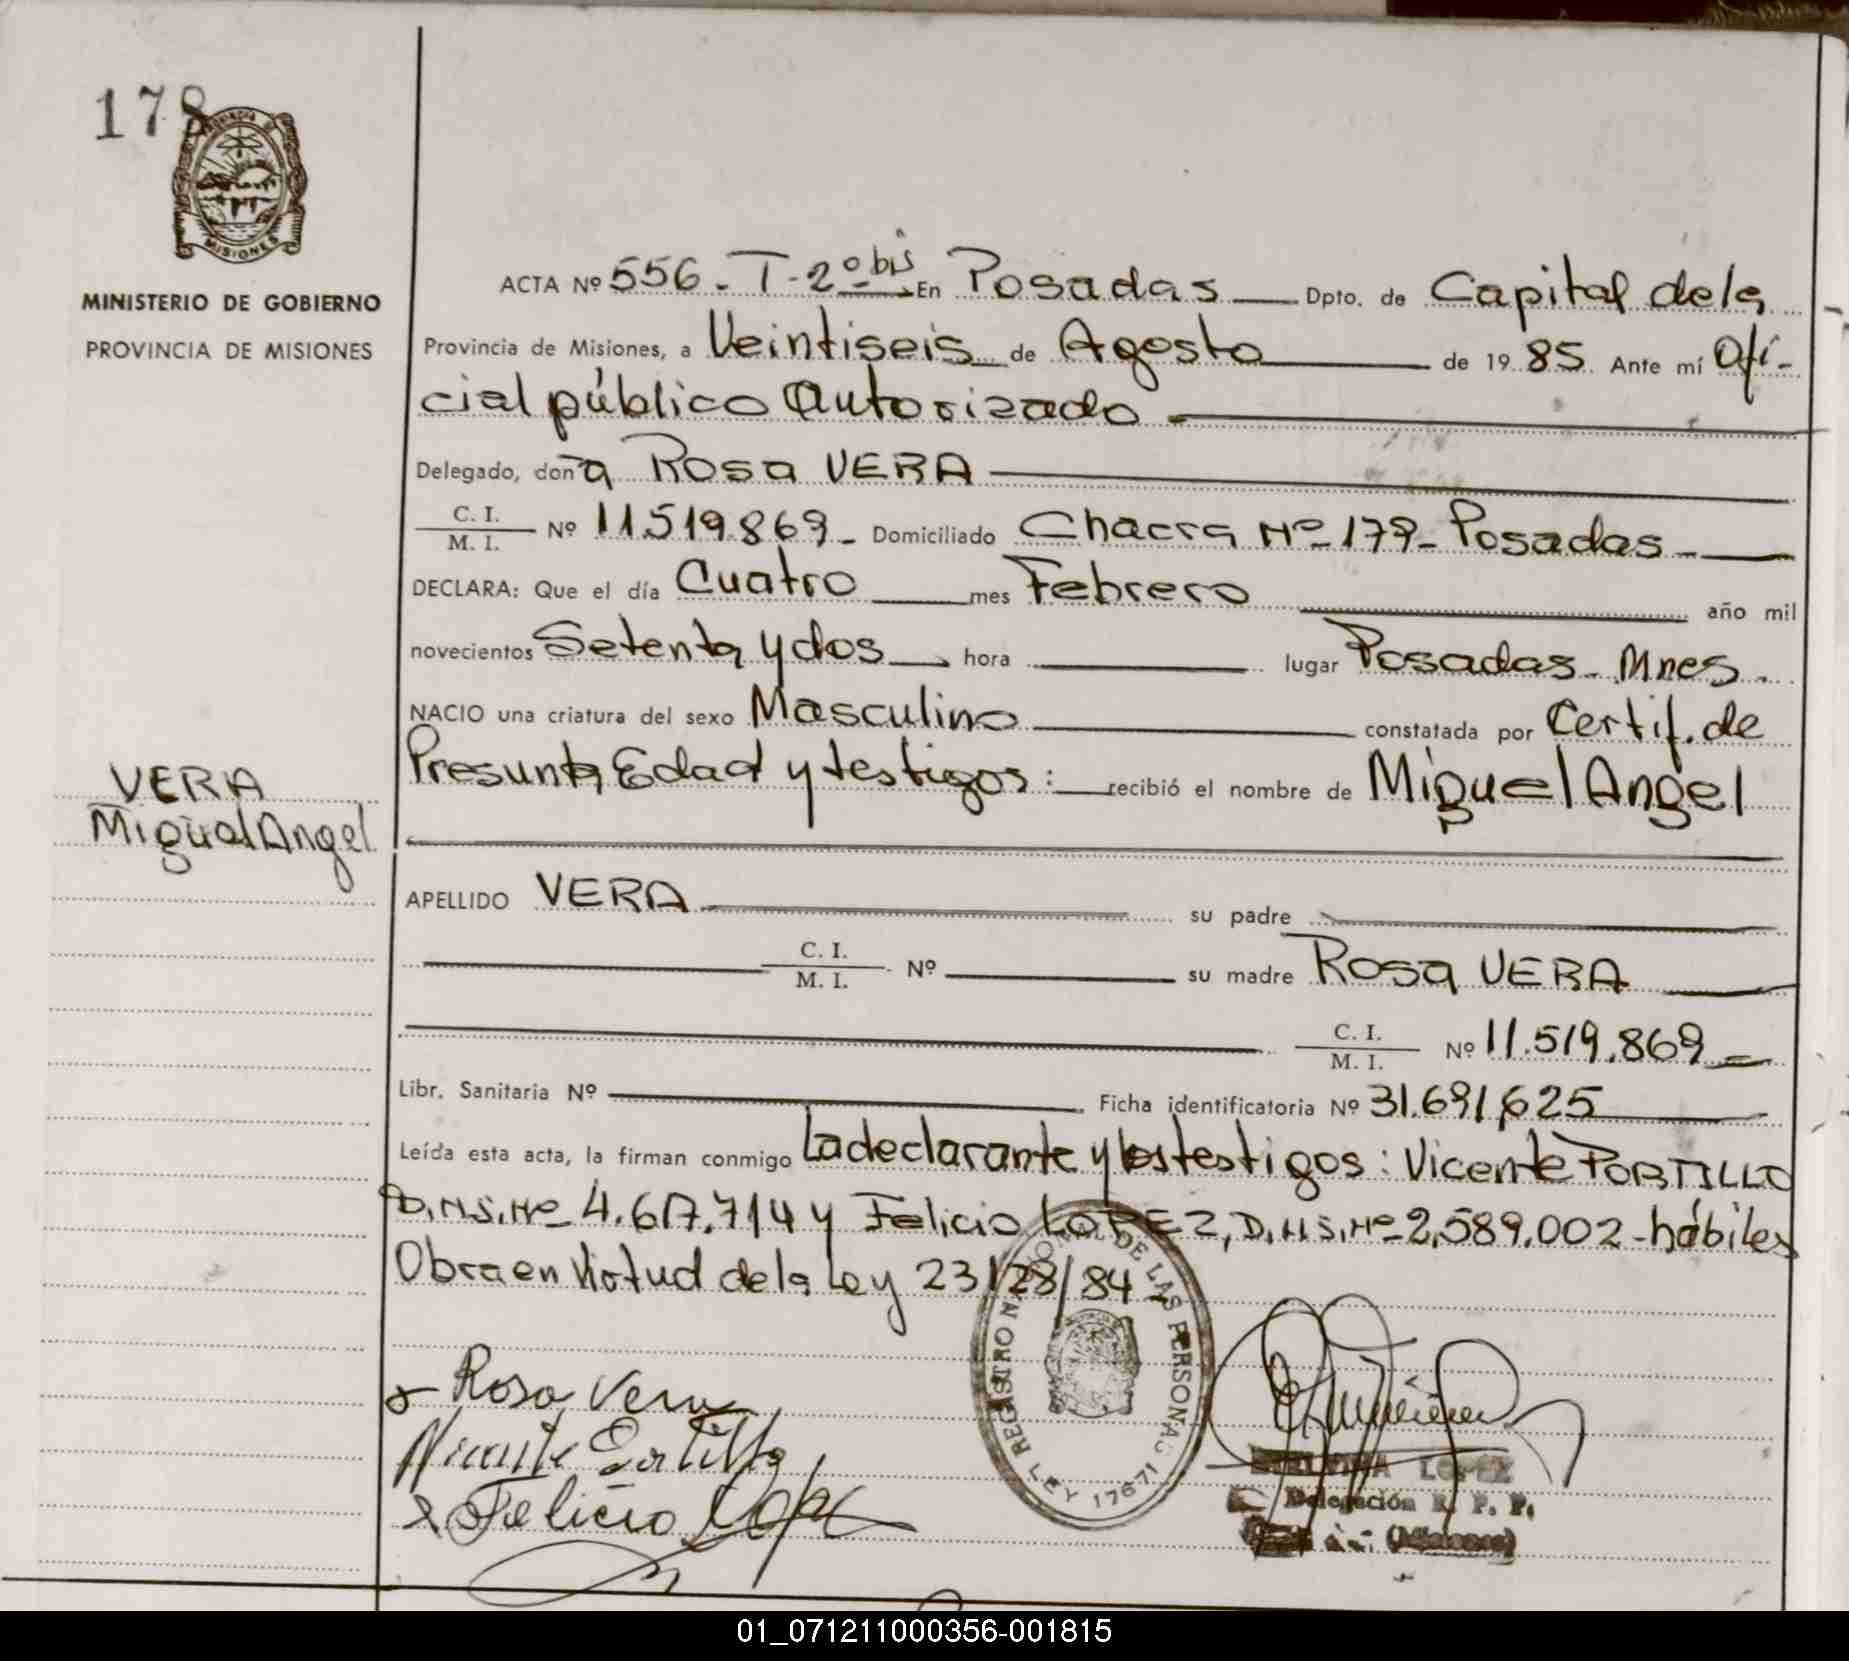 178
PROVINCIA DE
MISIONES
MINISTERIO DE GOBIERNO
PROVINCIA DE MISIONES
ACTA Nº 556. T-2º bis En Posadas Dpto. de Capital dela
Provincia de Misiones, a Veintiseis de Agosto de 1985. Ante mí Ofi-
cial público Autorizado
Delegado, doña Rosa VERA
C. I.
M. I. Nº 11.519.869- Domiciliado Chacra Nº 179- Posadas-
DECLARA: Que el día Cuatro mes Febrero año mil
novecientos Setenta y dos hora lugar Posadas- Mnes.
NACIO una criatura del sexo Masculino constatada por Certif. de
Presunta Edad y testigos: recibió el nombre de Miguel Angel
VERA
Miguel Angel
APELLIDO VERA su padre
C. I.
M. I. Nº su madre Rosa VERA
C. I.
M. I. Nº 11.519.869
Libr. Sanitaria Nº Ficha identificatoria Nº 31.691,625
Leída esta acta, la firman conmigo La declarante y los testigos: Vicente PORTILLO
D.N.I.Nº 4.617.714 y Felicio LOPEZ, D.N.I.Nº 2.589.002-hábiles
Obra en Virtud dela Ley 23128/84
REGISTRO NACIONAL DE LAS PERSONAS
LEY 17671
Rosa Vera
Vicente Portillo
Felicio Lopez
LOPEZ
Delegación R. P. P.
(Misiones)
01_071211000356-001815